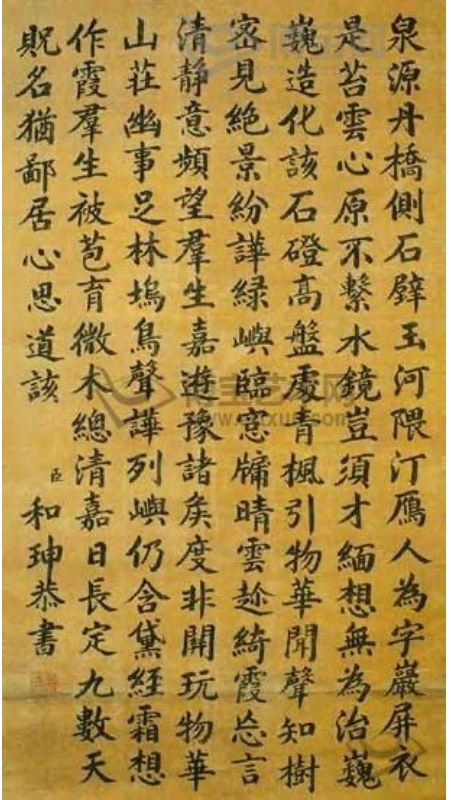 泉源丹橋側石壁玉河隈汀鴈人為字巖屏衣
是苔雲心原不繫水鏡豈須才緬想無為治巍
巍造化該石磴高盤處青楓引物華聞聲知樹
密見絶景紛譁綠嶼臨窓牗晴雲趂綺霞忘言
清靜意頻望羣生嘉遊豫諸矦度非開玩物華
山莊幽事足林塢鳥聲譁列嶼仍含黛經霜想
作霞羣生被苞育微木總清嘉日長定九數天
貺名猶鄙居心思道該
臣和珅恭書